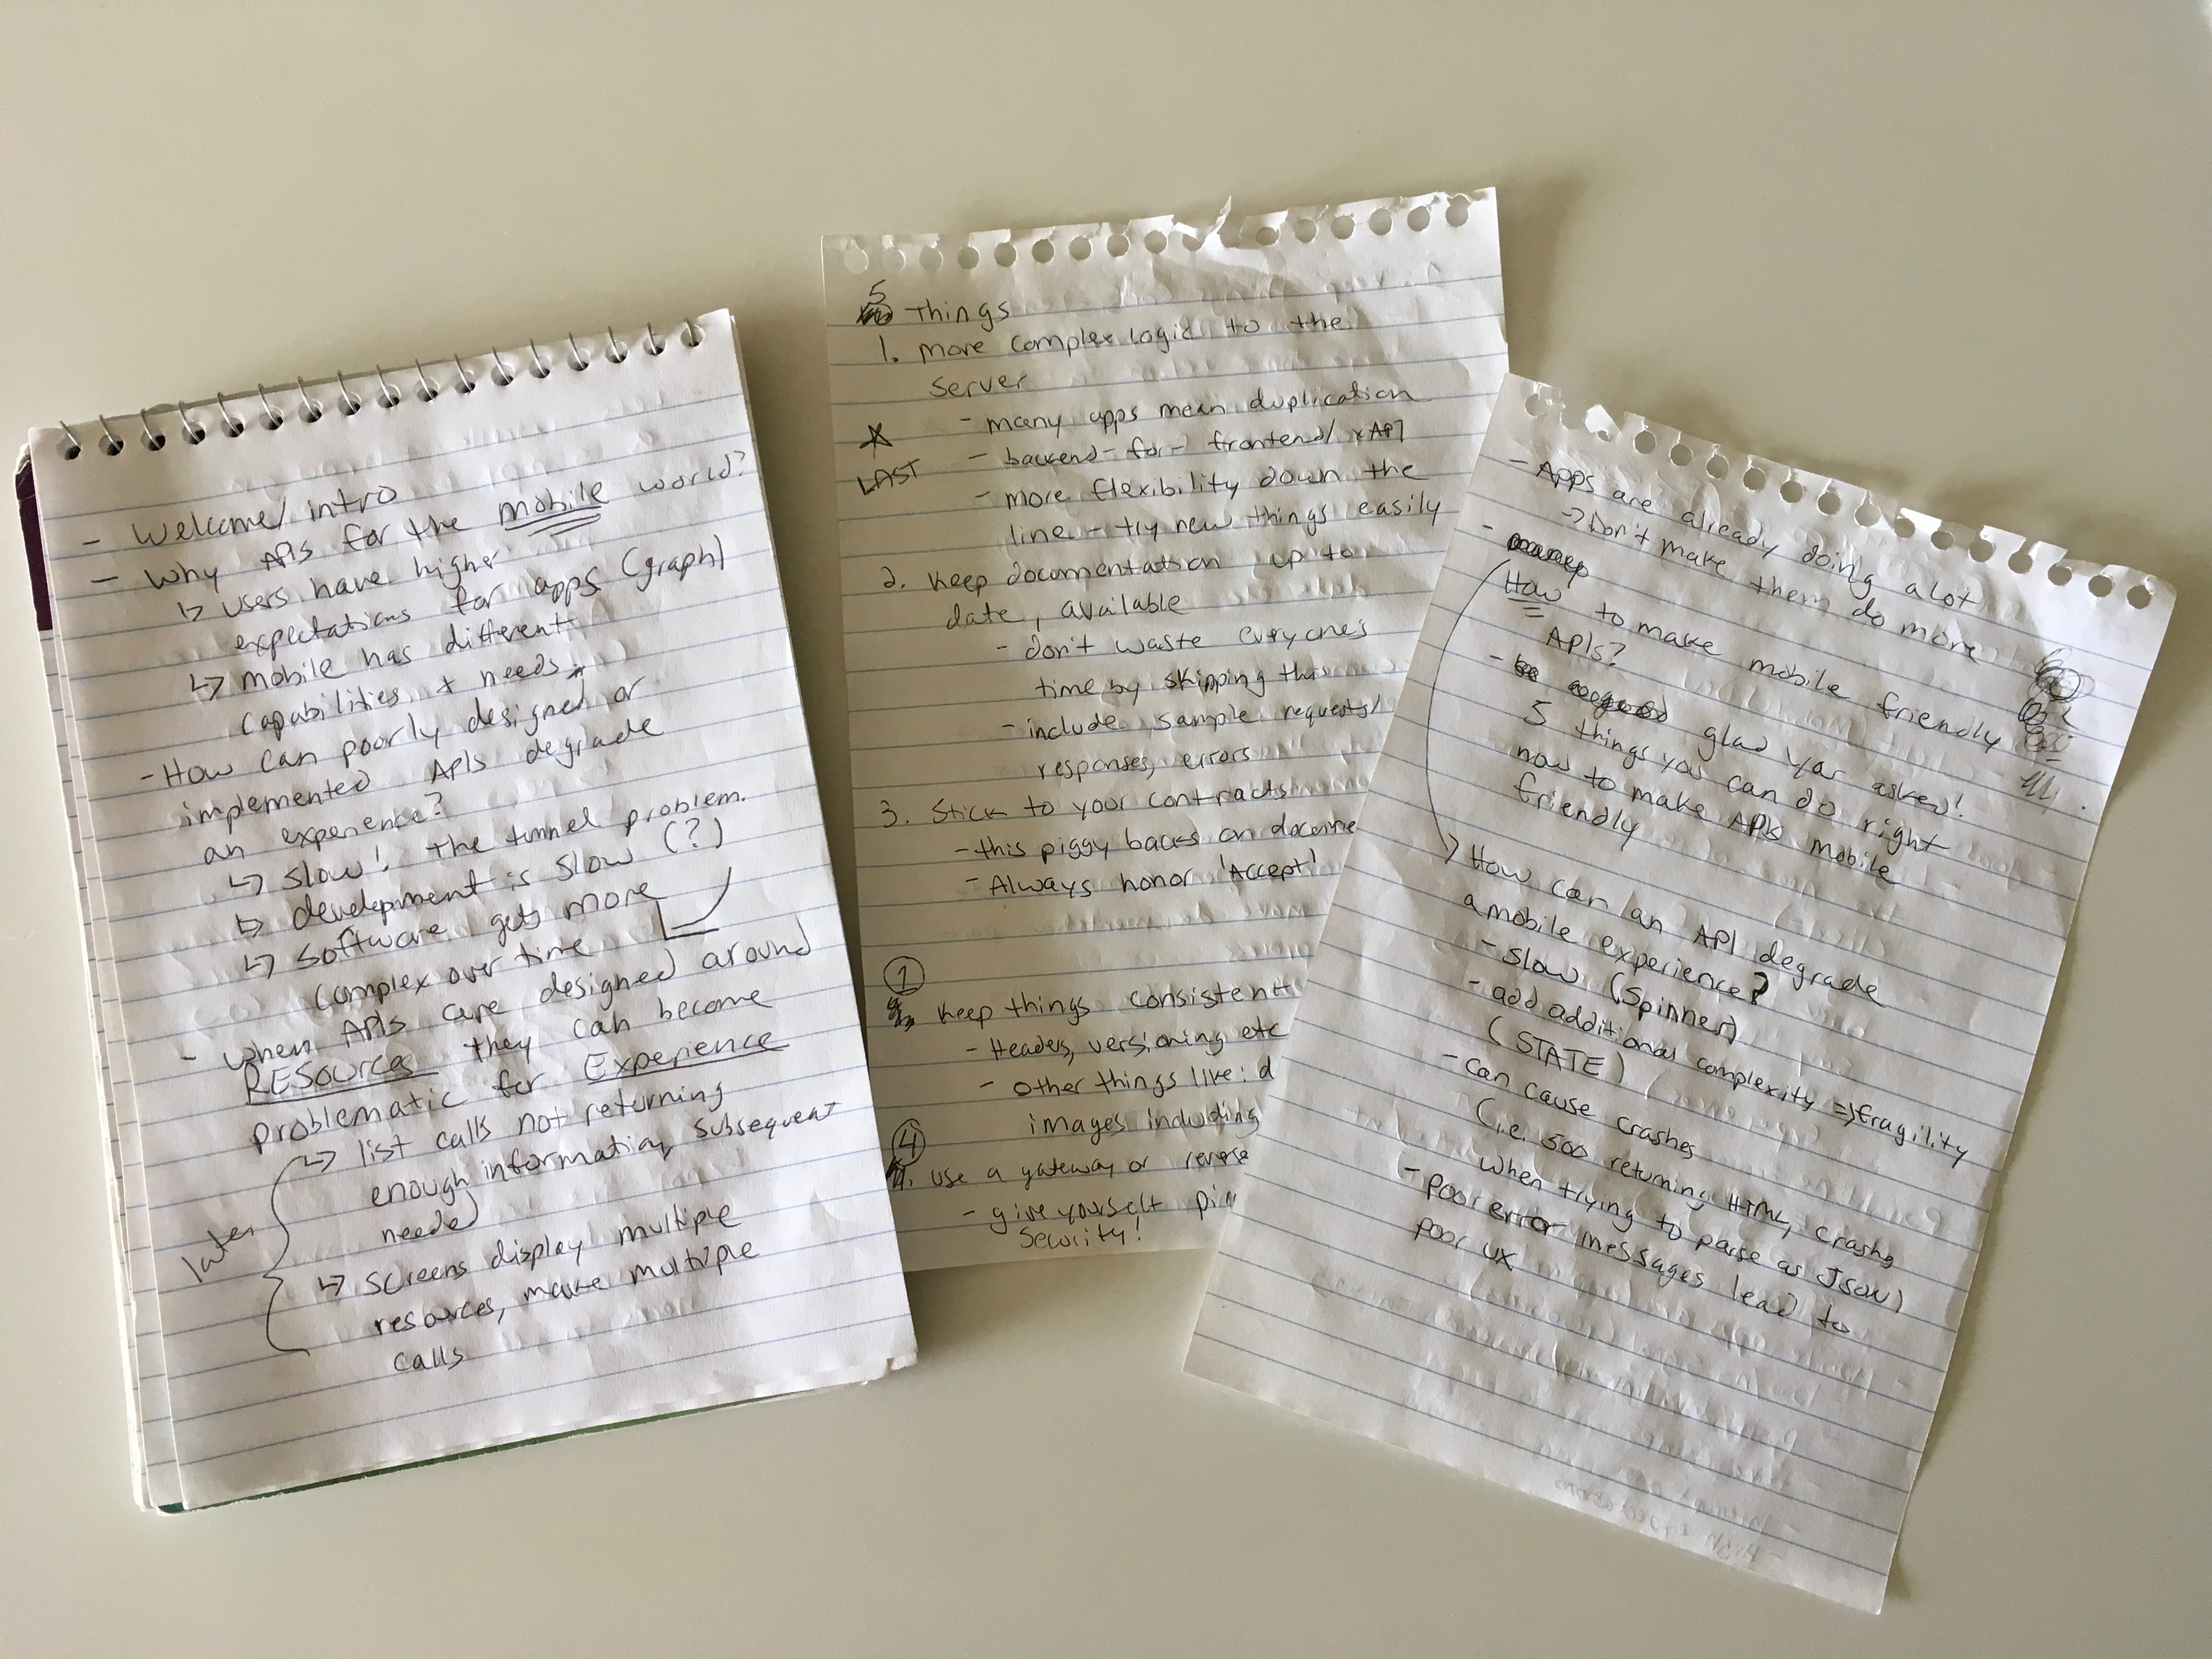 - Welcome/intro
- Why APIs for the mobile world?
↳ users have higher
expectations for apps (graph)
↳ mobile has different
capabilities + needs
- How can poorly designed or
implemented APIs degrade
an experience?
↳ Slow! The tunnel problem.
↳ development is slow (?)
↳ software gets more
complex over time
- when APIs are designed around
RESources they can become
problematic for Experience
later
↳ list calls not returning
enough information, subsequent
needed
↳ screens display multiple
resources, make multiple
calls
5
Things
1. more complex logic to the
server
- many apps mean duplication
* LAST
- backend-for-frontend/xAPI
- more flexibility down the
line - try new things easily
2. keep documentation up to
date, available
- don't waste everyone's
time by skipping this
- include sample requests/
responses, errors
3. Stick to your contracts
- this piggy backs on docume
- Always honor 'Accept'
1
keep things consistent
- Headers, versioning etc
- other things like: d
images including
4
use a gateway or reverse
- give yourself
Security!
- Apps are already doing a lot
→ Don't make them do more
-
How to make mobile friendly
APIs?
- glad you asked!
5 things you can do right
now to make APIs mobile
friendly
→ How can an API degrade
a mobile experience?
- slow (spinner)
- add additional complexity => fragility
(STATE)
- can cause crashes
(i.e. 500 returning HTML, crashes
when trying to parse as JSON)
- poor error messages lead to
poor UX